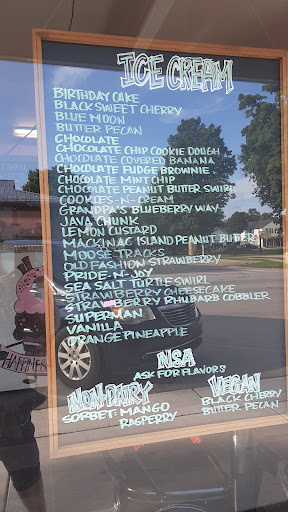 ICE CREAM
BIRTHDAY CAKE
BLACK SWEET CHERRY
BLUE MOON
BUTTER PECAN
CHOCOLATE
CHOCOLATE CHIP COOKIE DOUGH
CHOCOLATE COVERED BANANA
CHOCOLATE FUDGE BROWNIE
CHOCOLATE MINT CHIP
CHOCOLATE PEANUT BUTTER SWIRL
COOKIES-N-CREAM
GRANDPA'S BLUEBERRY WAY
JAVA CHUNK
LEMON CUSTARD
MACKINAC ISLAND PEANUT BUTTER
MOOSE TRACKS
OLD FASHION STRAWBERRY
PRIDE-N-JOY
SEA SALT TURTLE SWIRL
STRAWBERRY CHEESECAKE
STRAWBERRY RHUBARB COBBLER
SUPERMAN
VANILLA
ORANGE PINEAPPLE
NSA
ASK FOR FLAVORS
NON-DAIRY
SORBET: MANGO
RASPERRY
VEGAN
BLACK CHERRY
BUTTER PECAN
HAPPINES